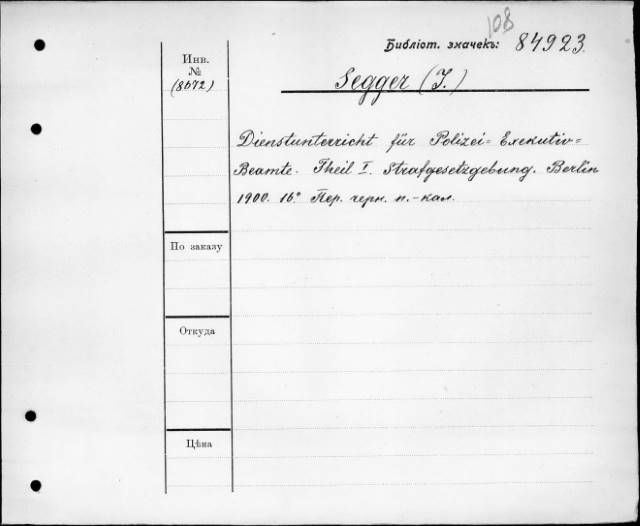 108
Библіот. значекъ: 84923.
Инв.
№
(8672)
Segger (J.)
Dienstunterricht für Polizei= Exekutiv=
Beamte. Theil I. Strafgesetzgebung. Berlin
1900. 16° Пер. черн. п.-кал.
По заказу
Откуда
Цѣна